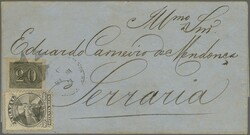 Illmo Snr
Eduardo Carneiro de Mendonça
Serraria
20